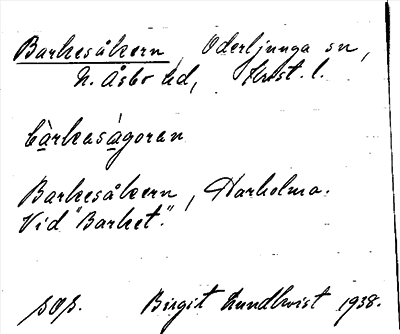 Barkesåkern, Oderljunga sn,
N. Åsbo hd, Krist. l.
bàrkəsågorən
Barkesåkern, Harholma.
Vid "Barket".
Birgit Lundkvist 1938.